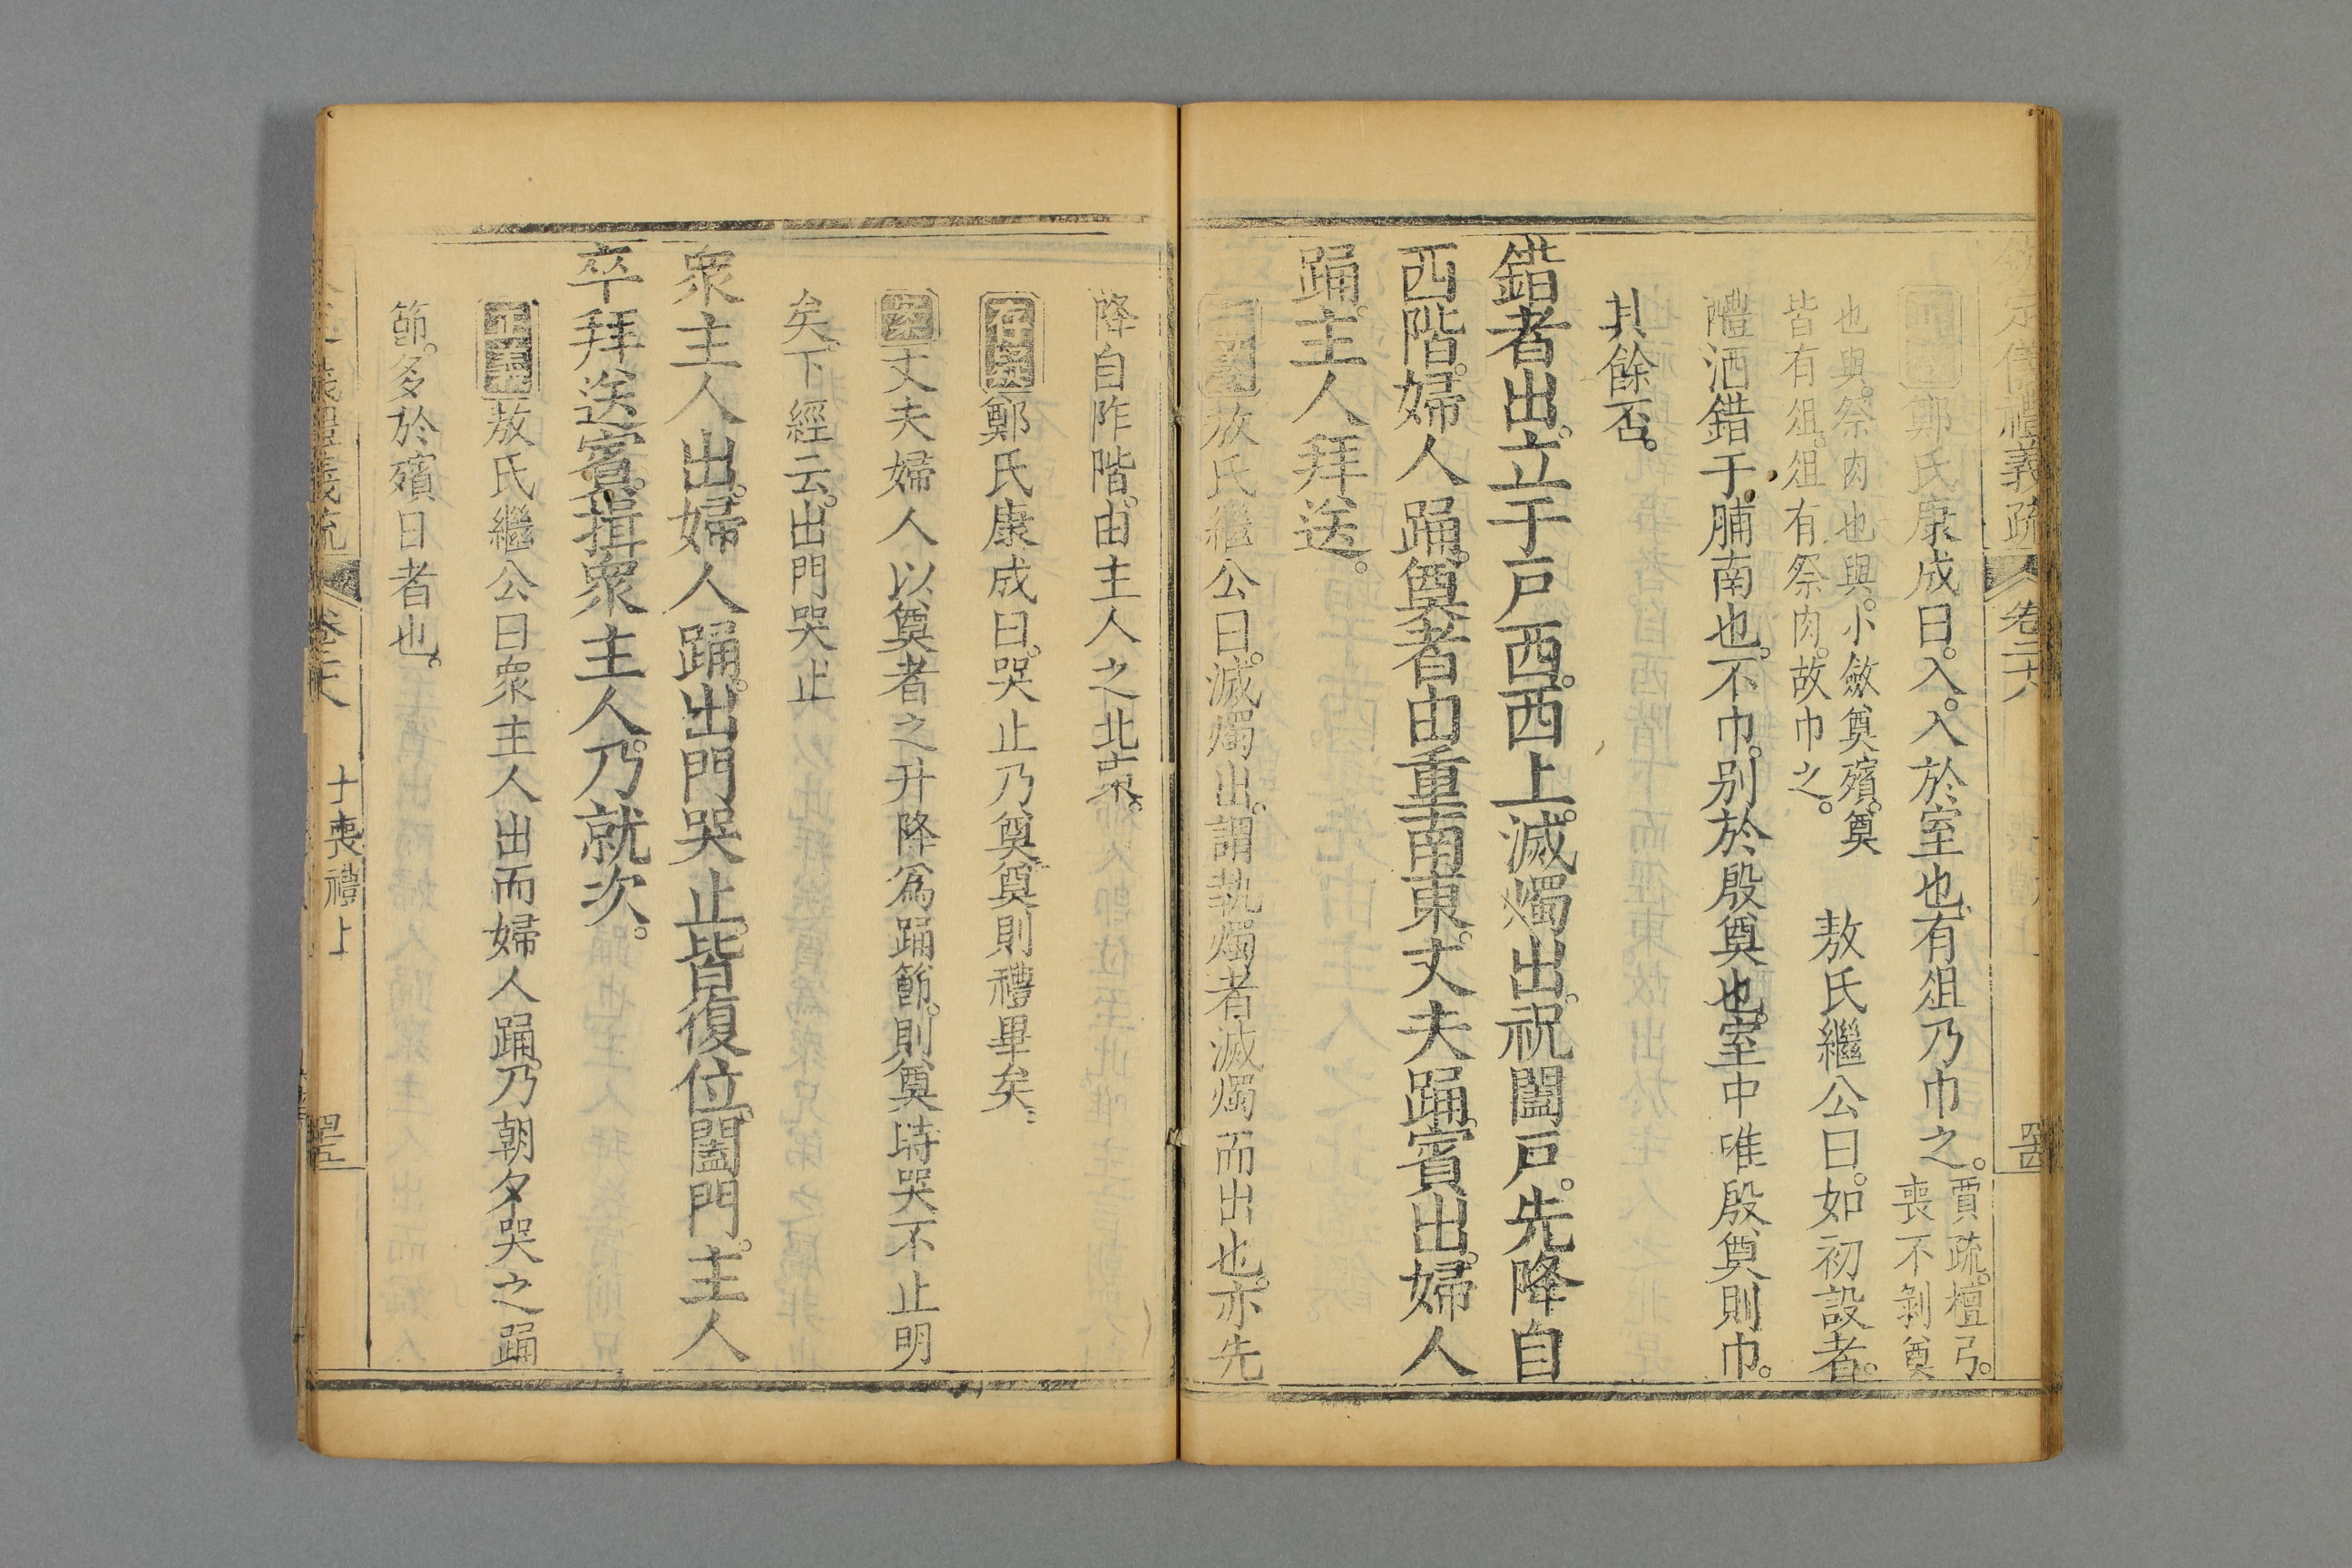 欽定儀禮義疏 卷二十八
正義鄭氏康成曰。入。入於室也。有俎乃巾之。賈疏。檀弓。
喪不剝奠
也與。祭肉也與。小斂奠殯。奠
皆有俎。俎有祭肉。故巾之。
敖氏繼公曰。如初設者。
醴酒錯于脯南也。不巾。别於殷奠也。室中唯殷奠則巾。
其餘否。
錯者出。立于戸西。西上。滅燭出。祝闔戸。先降自
西階。婦人踊。奠者由重南東。丈夫踊。賓出。婦人
踊。主人拜送。
正義敖氏繼公曰。滅燭出。謂執燭者滅燭而出也。亦先
降自阼階。由主人之北東。
存疑鄭氏康成曰。哭止乃奠。奠則禮畢矣。
案丈夫婦人以奠者之升降爲踊節。則奠時哭不止明
矣。下經云。出門哭止
衆主人出。婦人踊。出門哭止。皆復位。闔門。主人
卒拜送賓。揖衆主人。乃就次。
正義敖氏繼公曰衆主人出而婦人踊。乃朝夕哭之踊
節。多於殯日者也。
義禮義疏 卷二十八 士喪禮上